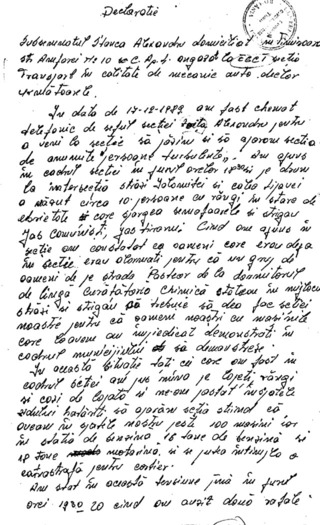 Declarație
Subsemnatul Stanca Alexandru domiciliat în Timișoara
str. Amforei nr. 10 sc. C. Ap. 4. angajat la ECCT secția
Transport în calitate de mecanic auto declar
următoarele.
În data de 17-12-1989 am fost chemat
telefonic de șeful secției Alexandru pentru
a veni la secție să păzim și să apărăm secția
de anumite persoane turbulente. Am ajuns
în cadrul secției în jurul orelor și pe drum
la intersecția străzi Ialomiței și calea Lipovei
a văzut circa 10 persoane cu răngi în stare de
ebrietate care spărgea semafoarele și strigau
jos comuniști, jos tiranii. Cînd am ajuns în
secție am constatat că oameni care erau deja
în secție erau alarmați pentru că un grup de
oameni de pe strada Pasteur de la dormitorul
de lîngă Curătătoria Chimică stăteau în mijlocul
străzi și strigau că trebuie să dea foc secției
noastre pentru că oameni noștri cu mașinile
care le aveam au împiedicat demonstrați în
cadrul municipiului să demonstreze.
În această situație toți cei care am fost în
cadrul secției am pus mîna pe lopeți, răngi
și cozi de lopată și ne-am postat în spatele
zidului hotărîți să apărăm secția știind că
aveam în spatele nostru peste 100 mașini iar
în stația de benzină 18 tone de benzină și
18 tone motorină, și se putea întîmpla o
catastrofă pentru cartier.
Am stat în această tensiune pînă în jurul
orei 19³⁰ 20 cînd am auzit două rafale